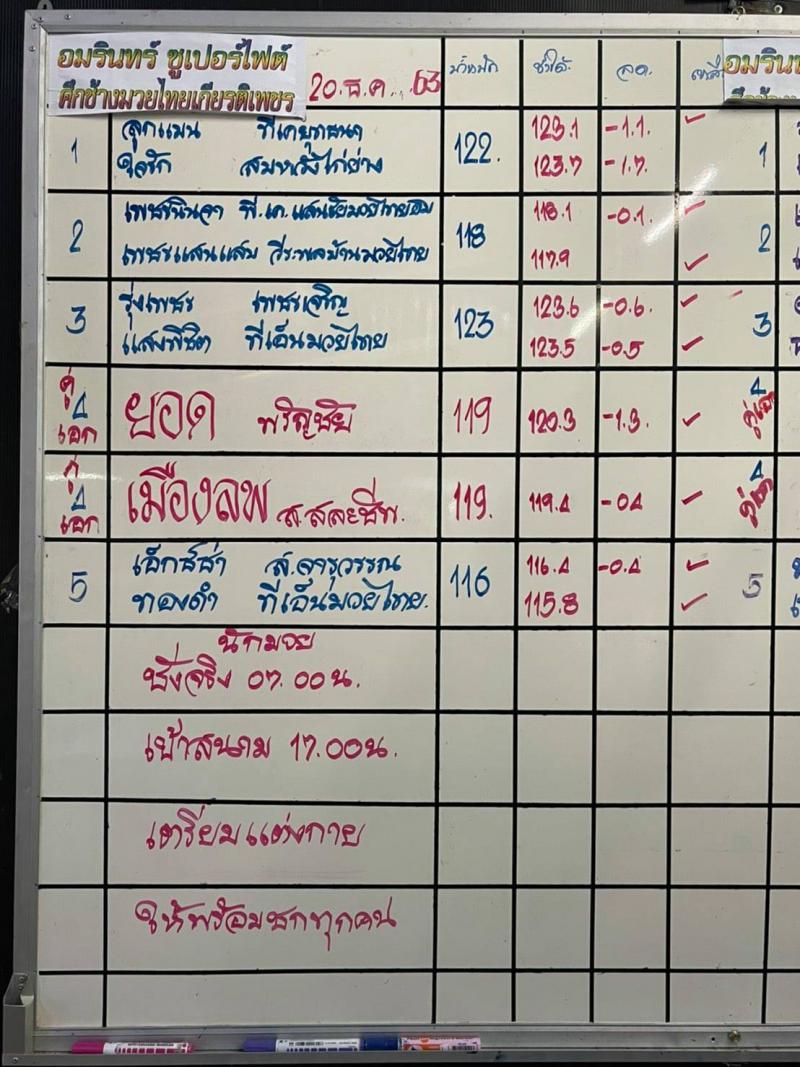 อมรินทร์ ซูเปอร์ไฟต์
ศึกช้างมวยไทยเกียรติเพชร
20. ธ.ค. 63 น้ำหนัก ชั่งได้ ลด.
อมริน
1 ลูกแมน 122. 123.1 -1.1. ✓ 1
ใจรัก สมหวังไก่ย่าง 123.7 -1.7.
2 เพชรนินจา พี.เค.แสนชัยมวยไทยยิม 118 118.1 -0.1. ✓ 2
เพชรแสนแสบ วีระพลบ้านมวยไทย 117.9 ✓
3 รุ่งเพชร เพชรเจริญ 123 123.6 -0.6. ✓ 3
แสงพิชิต ทีเอ็นมวยไทย 123.5 -0.5 ✓
คู่ 4 เอก ยอด พริญชัย 119 120.3 -1.3. ✓ 4 คู่เอก
คู่ 4 เอก เมืองลพ ส.สละชีพ. 119. 119.4 -04 ✓ 4 คู่เอก
5 เอ็กซ์ซ่า ส.จารุวรรณ 116 116.4 -0.4 ✓ 5
ทองดำ ทีเอ็นมวยไทย. 115.8 ✓
นักมวย
ชั่งจริง 07.00น.
เข้าสนาม 17.00น.
เตรียมแต่งกาย
ให้พร้อมชกทุกคน